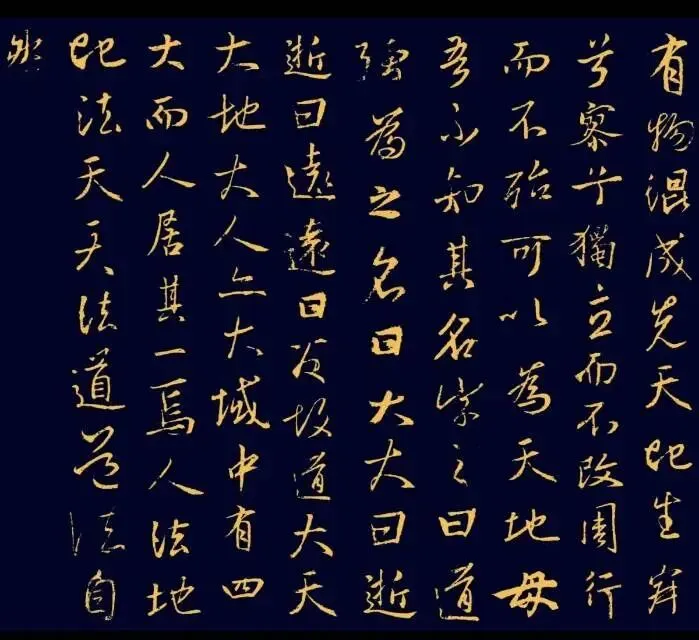 有物混成先天地生寂
兮寥兮獨立而不改周行
而不殆可以為天地母
吾不知其名之曰道
強為之名曰大大曰逝
逝曰遠遠曰反故道大天
大地大人亦大域中有四
大而人居其一焉人法地
地法天天法道道法自
然